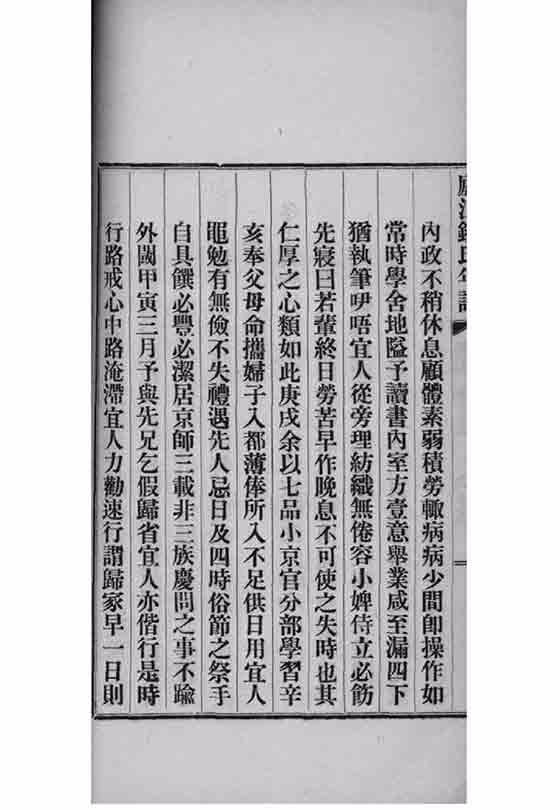 廬江錢氏年譜
內政不稍休息顧體素弱積勞輙病病少間卽操作如
常時學舍地隘予讀書內室方壹意舉業咸至漏四下
猶執筆吚唔宜人從旁理紡織無倦容小婢侍立必飭
先寢曰若輩終日勞苦早作晚息不可使之失時也其
仁厚之心類如此庚戌余以七品小京官分部學習辛
亥奉父母命攜婦子入都薄俸所入不足供日用宜人
黽勉有無儉不失禮遇先人忌日及四時俗節之祭手
自具饌必豐必潔居京師三載非三族慶問之事不踰
外閾甲寅三月予與先兄乞假歸省宜人亦偕行是時
行路戒心中路淹滯宜人力勸速行謂歸家早一日則